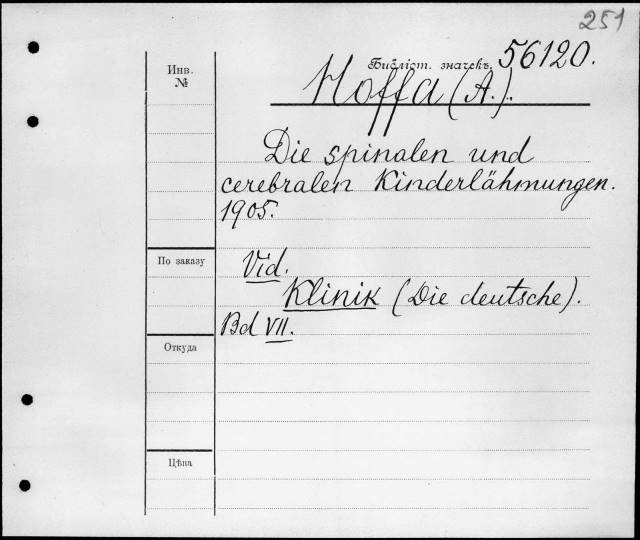 251
Библіот. значекъ. 56120.
Инв.
№
Hoffa (A.).
Die spinalen und
cerebralen Kinderlähmungen.
1905.
По заказу
Vid.
Klinik (Die deutsche).
Bd VII.
Откуда
Цѣна